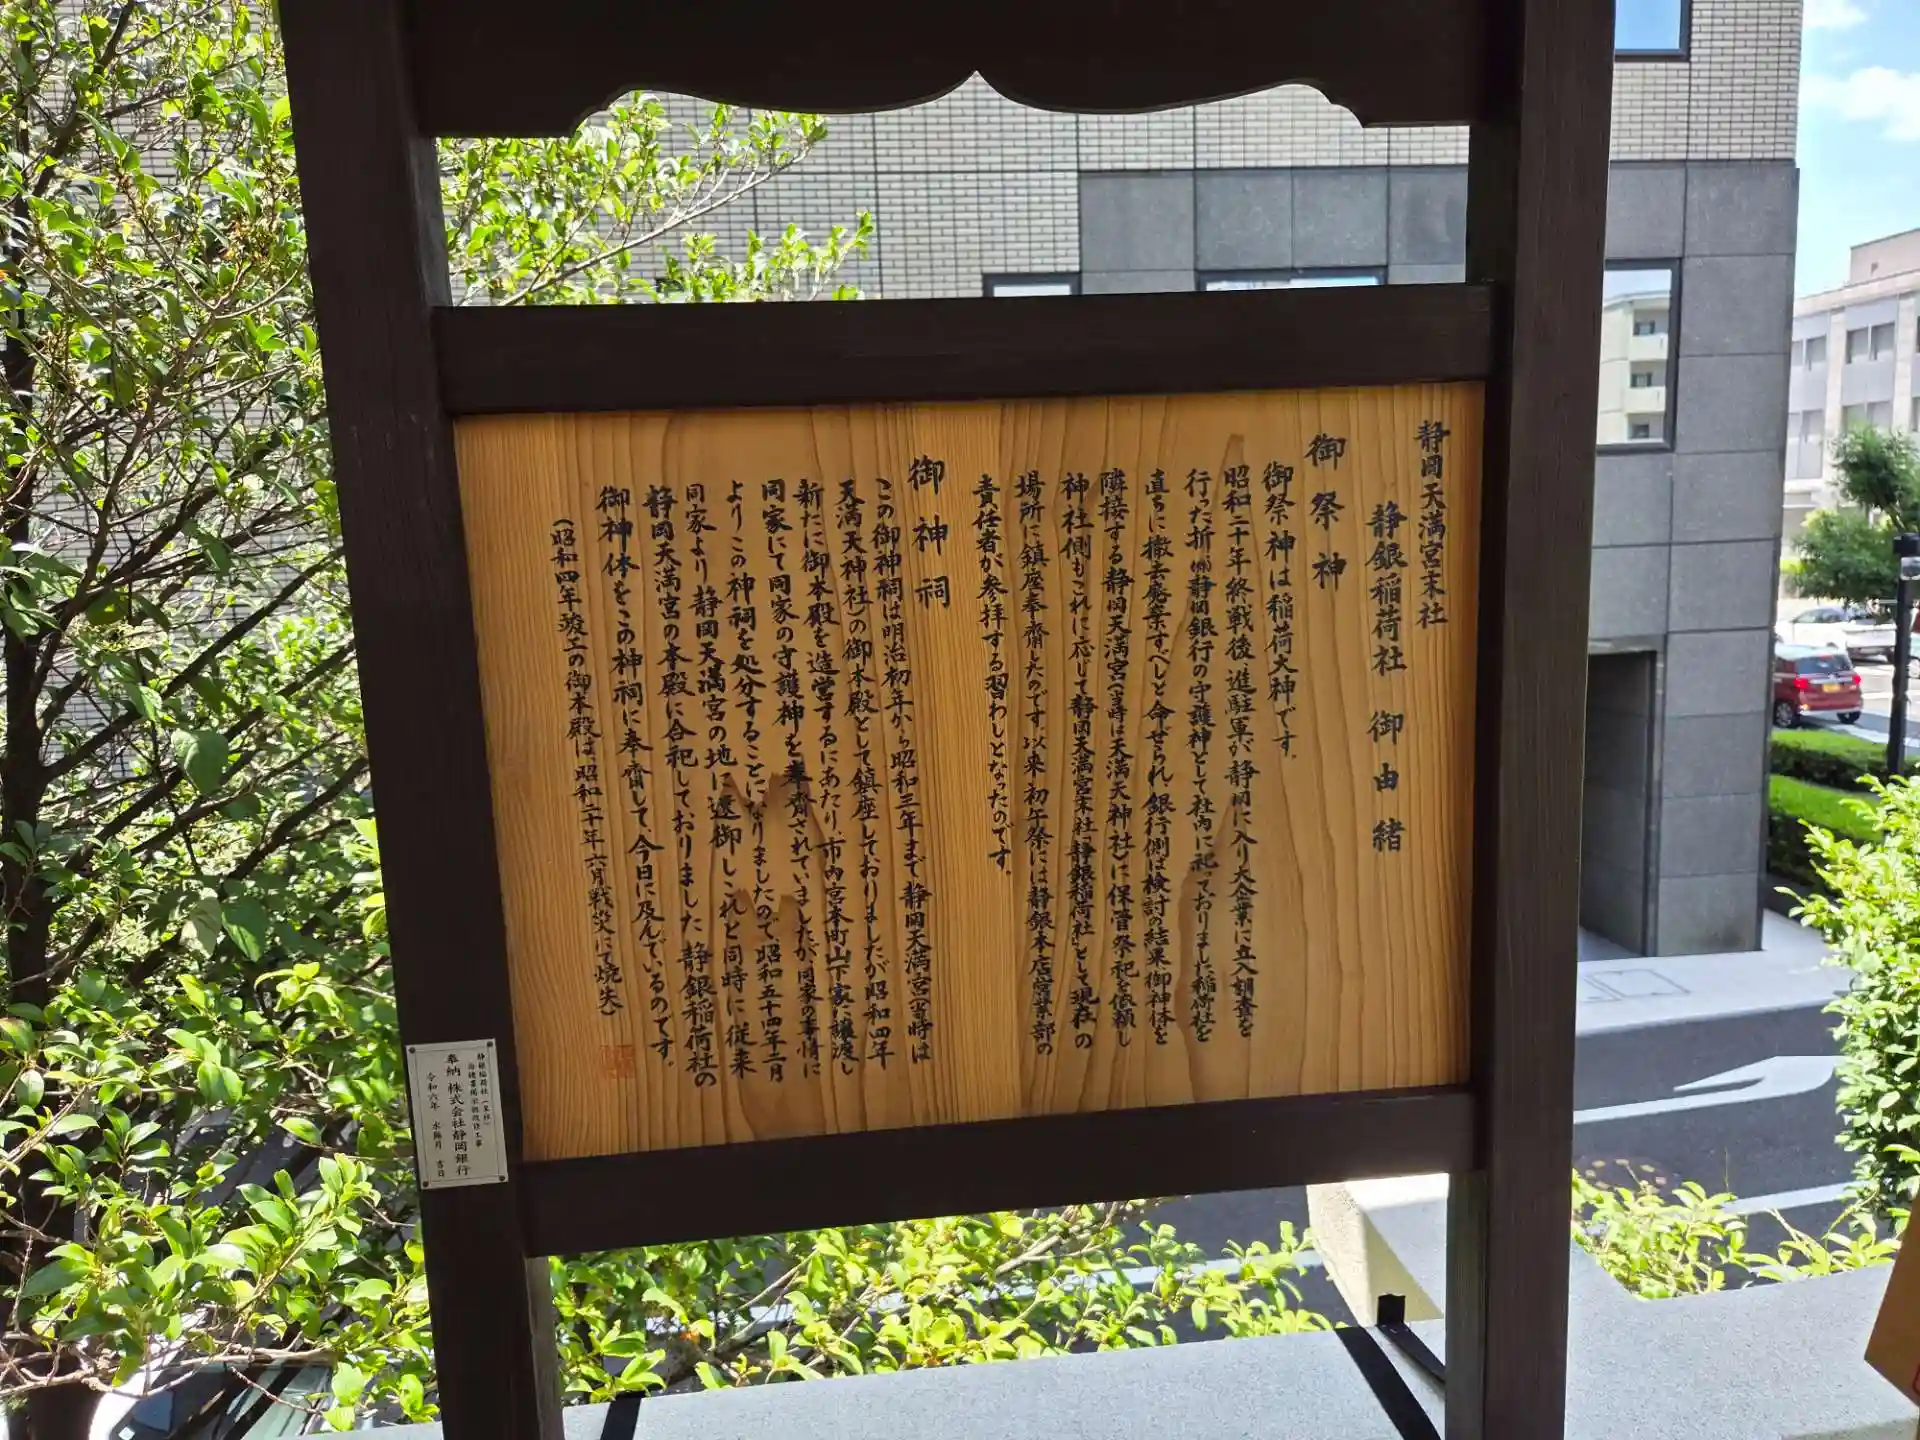 静岡天満宮末社
静銀稲荷社 御由緒
御祭神
御祭神は稲荷大神です。
昭和二十年終戦後、進駐軍が静岡に入り大企業に立入調査を
行った折、㈱静岡銀行の守護神として社内に祀っておりました稲荷社を
直ちに撤去廃棄すべしと命ぜられ、銀行側は検討の結果、御神体を
隣接する静岡天満宮(当時は天満天神社)に保管祭祀を依頼し
神社側もこれに応じて静岡天満宮末社「静銀稲荷社」として現在の
場所に鎮座奉齋したのです。以来、初午祭には静銀本店営業部の
責任者が参拝する習わしとなったのです。
御神祠
この御神祠は明治初年から昭和三年まで静岡天満宮(当時は
天満天神社)の御本殿として鎮座しておりましたが昭和四年
新たに御本殿を造営するにあたり、市内宮本町山下家に譲渡し
同家にて同家の守護神を奉齋されていましたが、同家の事情に
よりこの神祠を処分することになりましたので、昭和五十四年二月
同家より静岡天満宮の地に遷御しこれと同時に従来
静岡天満宮の本殿に合祀しておりました静銀稲荷社の
御神体をこの神祠に奉齋して、今日に及んでいるのです。
(昭和四年竣工の御本殿は、昭和二十年六月戦災にて焼失)
静銀稲荷社(末社)
奉納 株式会社静岡銀行
令和六年 水無月 吉日